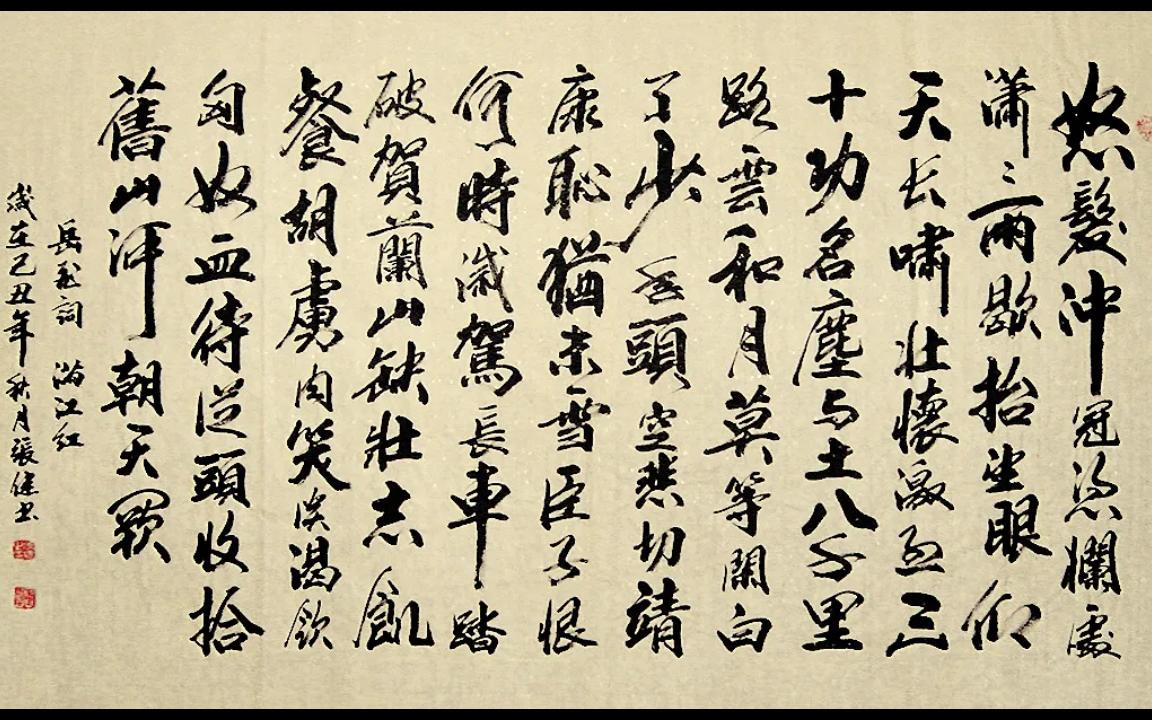 怒髮冲冠憑欄處
瀟〻雨歇抬望眼仰
天长嘯壯懷激烈三
十功名塵与土八千里
路雲和月莫等閑白
了少年頭空悲切靖
康恥猶未雪臣子恨
何時滅駕長車踏
破賀蘭山缺壯志飢
餐胡虜肉笑談渴飲
匈奴血待從頭收拾
舊山河朝天闕
岳飛詞 滿江红
歲在己丑年秋月張健书